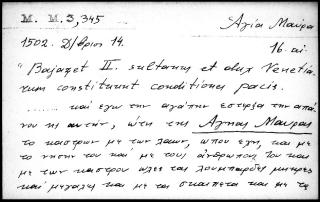 M. M. 3, 345
Αγία Μαύρα
1502. Δ/βριος 14.
16. αι.
"Bajazet II. sultanus et dux Venetia-
rum constituunt conditiones pacis.
......... και εγω την αγάπην εστερξα την απά-
νου της αυτήν, ώτι της Αγηας Μαυρας
το καστρων με των λαων, ωπου εχη, και με
το νησην του και με τους ανθρωπους του και
με των καστρου ωλες ταις λουμπαρδες μηκρες
και μεγαλες και με τα σκουπετα και με τη